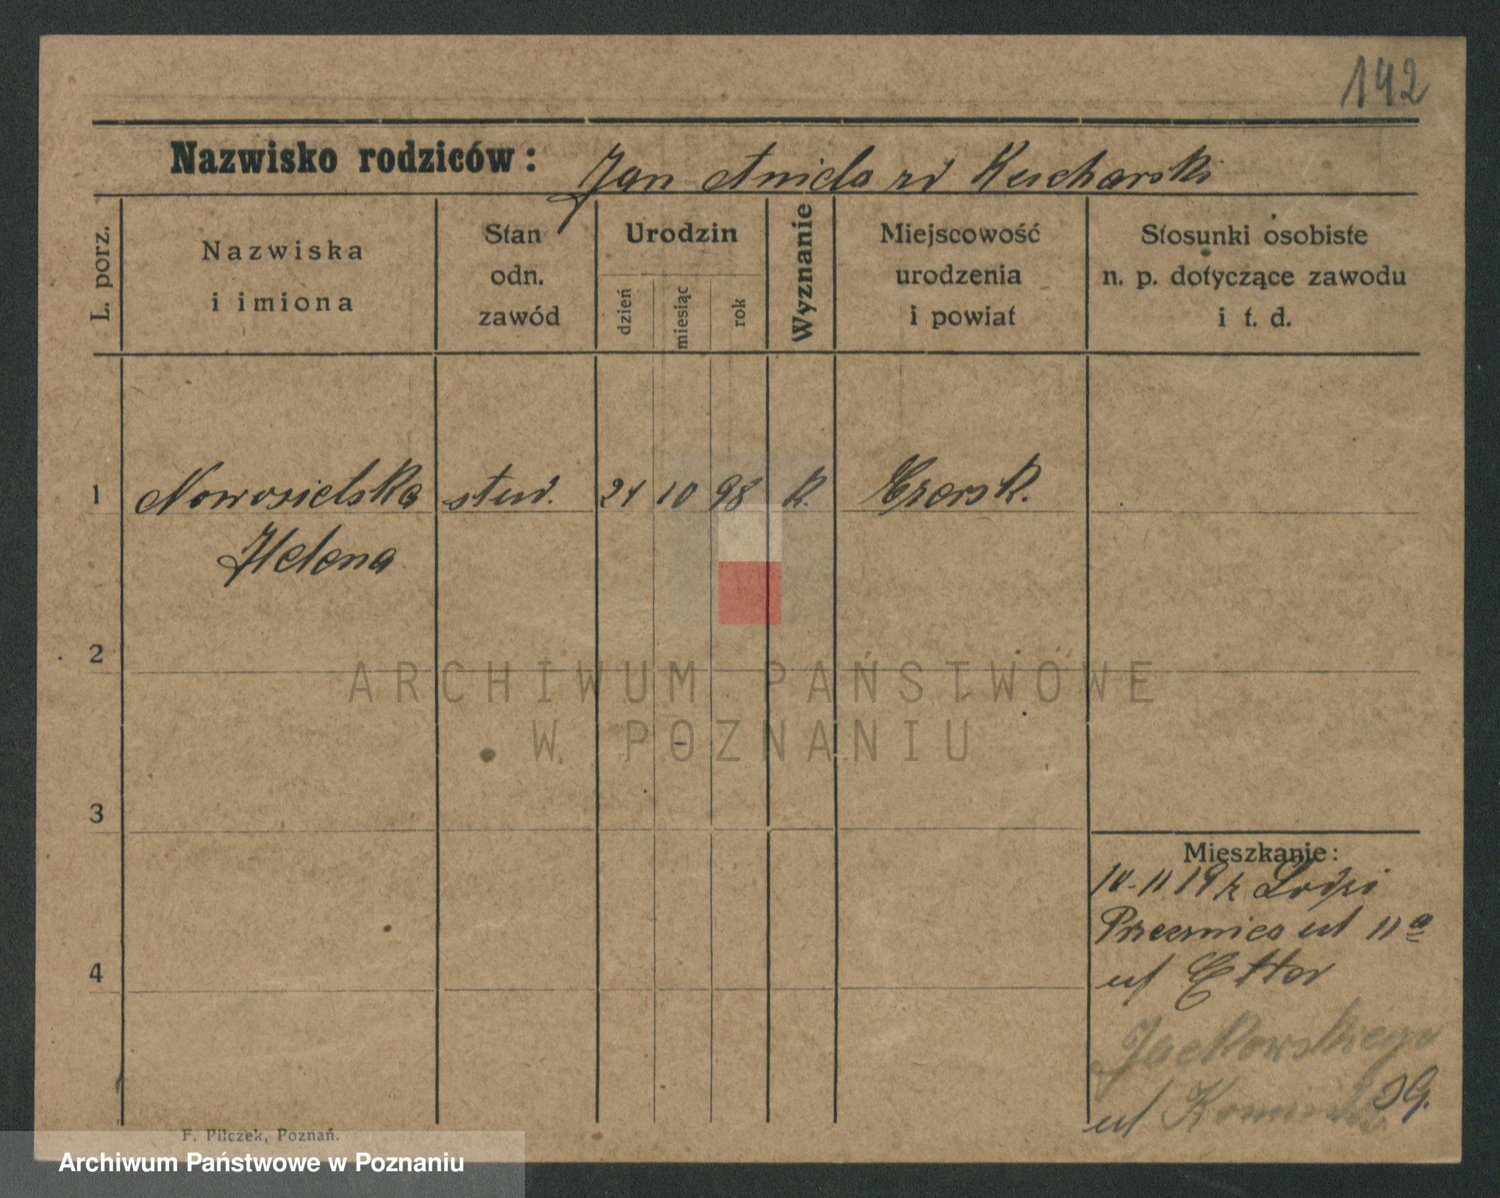 142
Nazwisko rodziców: Jan Aniela zd Kucharski
L. porz.
Nazwiska
i imiona
Stan
odn.
zawód
Urodzin
dzień
miesiąc
rok
Wyznanie
Miejscowość
urodzenia
i powiat
Stosunki osobiste
n. p. dotyczące zawodu
i t. d.
1 Nowosielska stud. 24 10 98 k. Czersk.
Helena
2
ARCHIWUM PAŃSTWOWE
W POZNANIU
3
Mieszkanie:
10-11 19 z Łodzi
ul 11a
4
ul
Jackowskiego
39.
ul
F. Pilczek, Poznań.
Archiwum Państwowe w Poznaniu